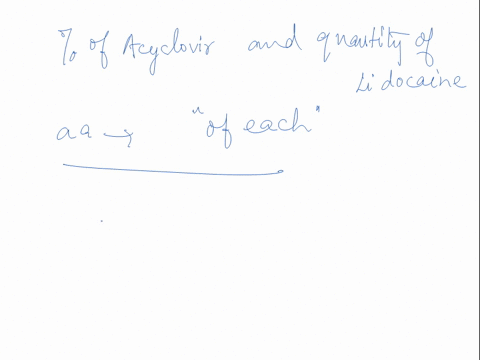 % of Acyclovir and quantity of
Lidocaine
aa → "of each"